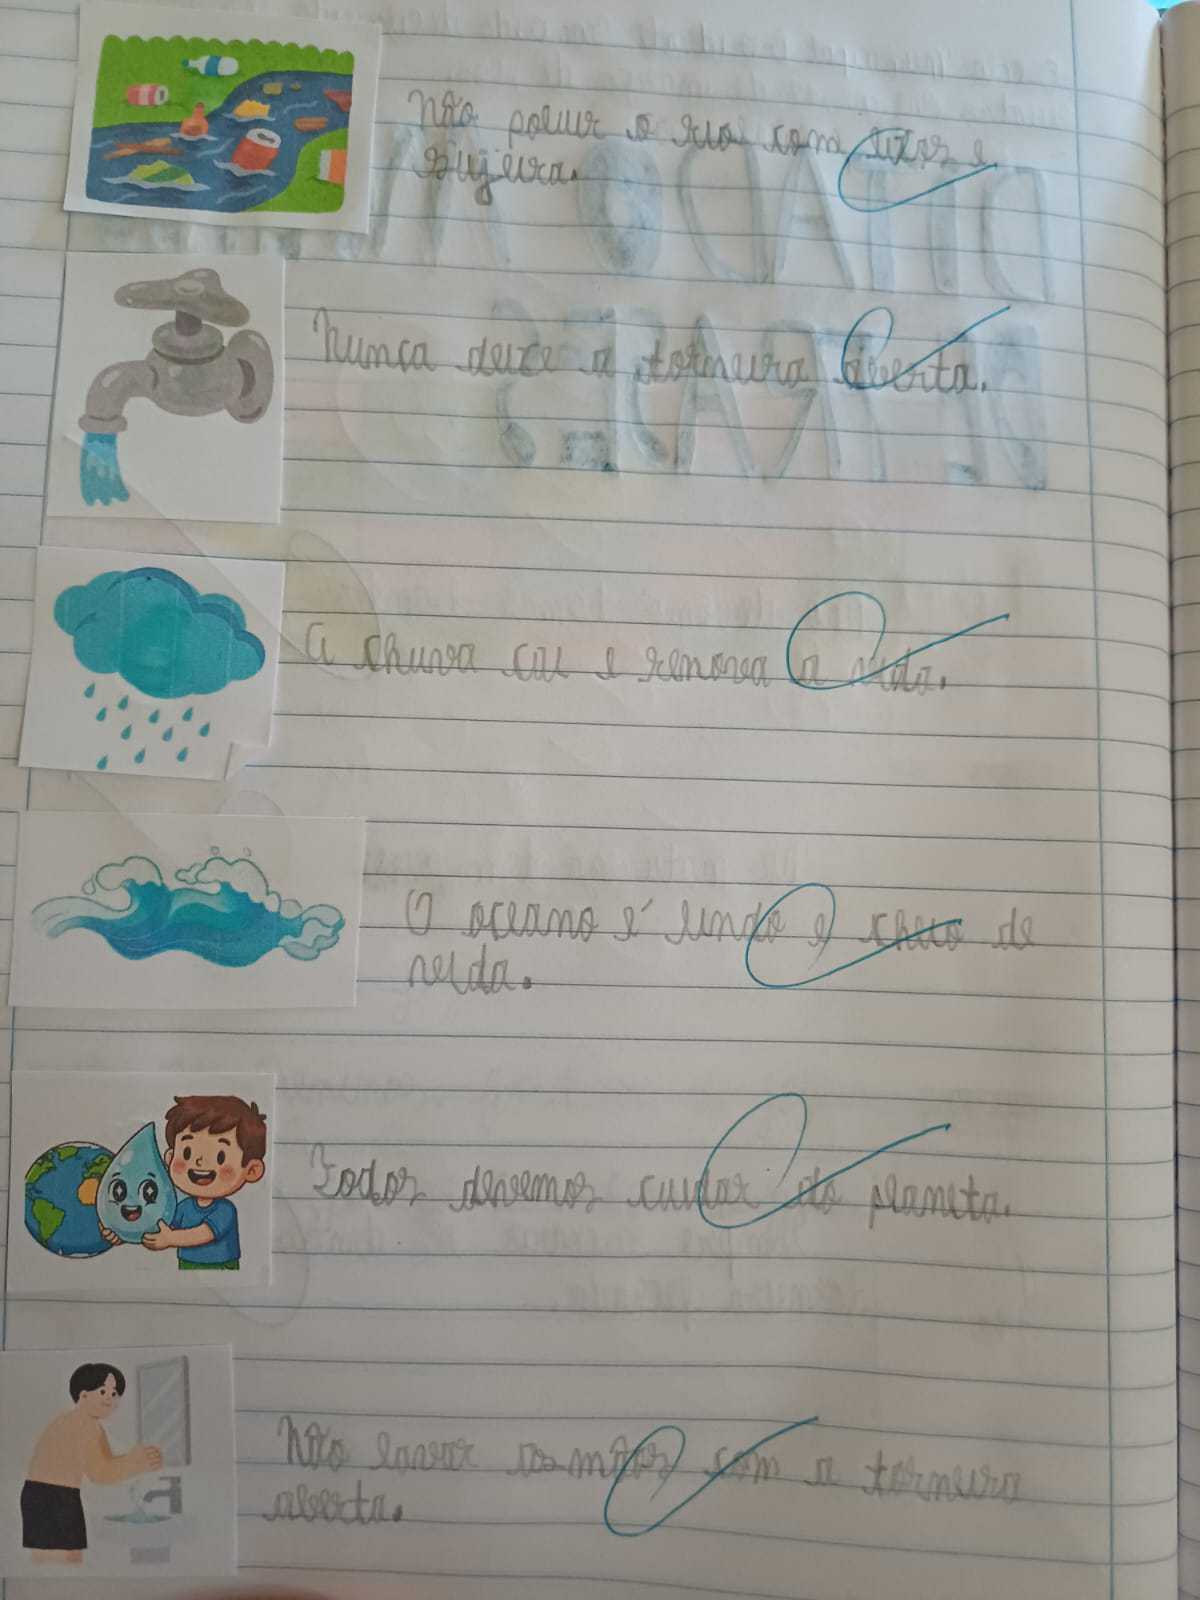 Não poluir o rio com lixos e
sujeira.
Nunca deixe a torneira aberta.
A chuva cai e renova a vida.
O oceano é lindo e cheio de
vida.
Todos devemos cuidar do planeta.
Não lavar as mãos com a torneira
aberta.